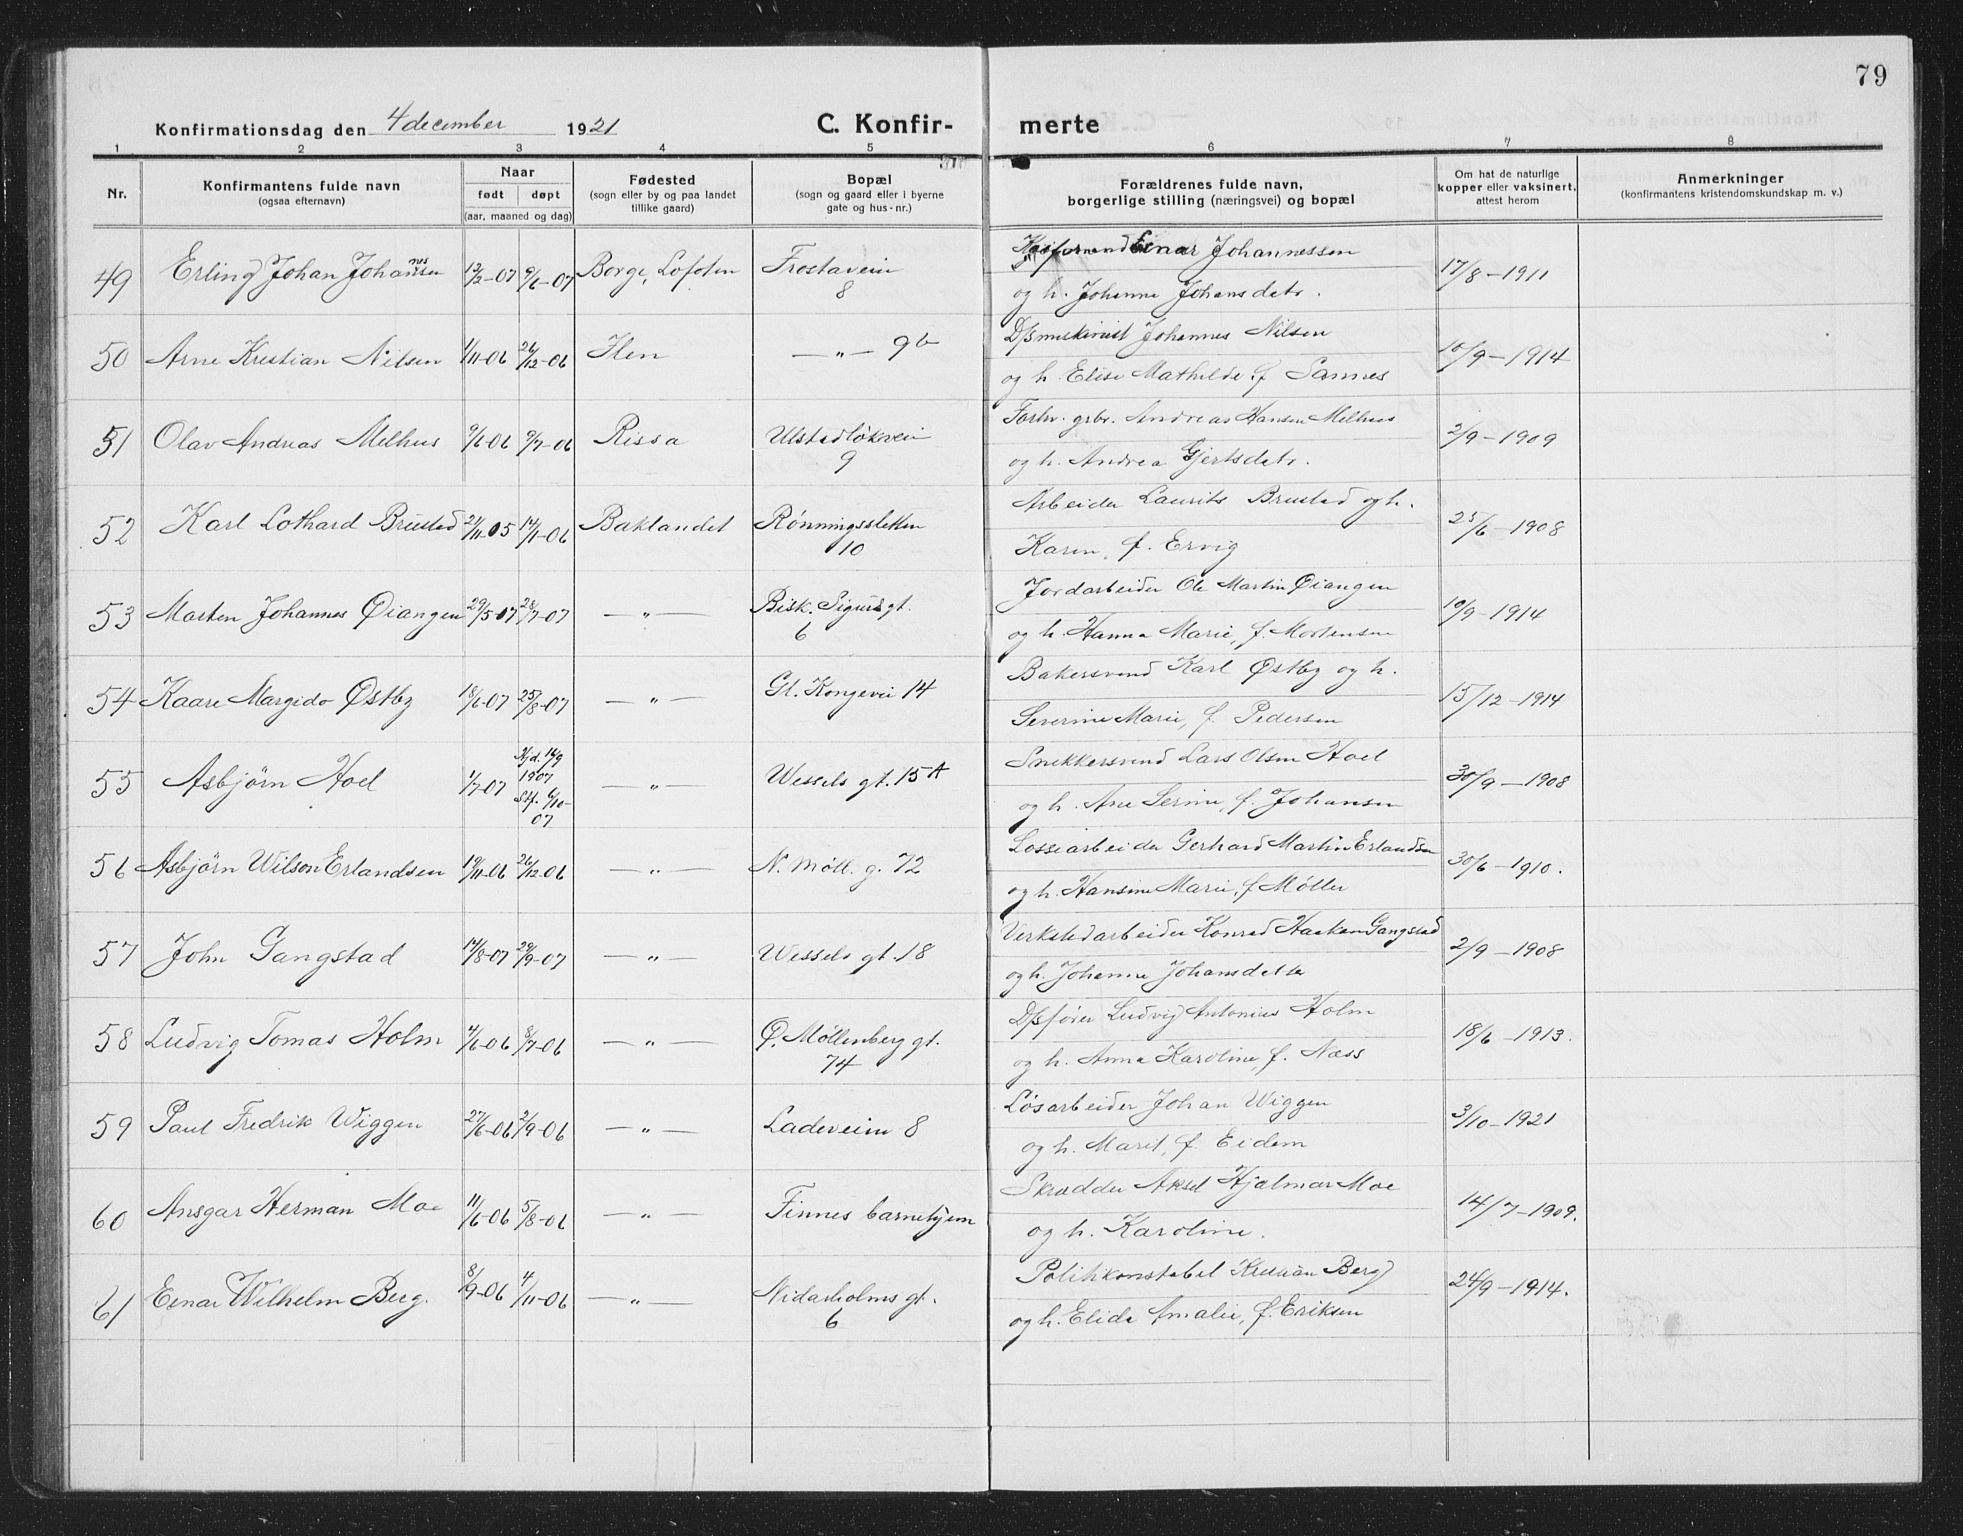 79
Konfirmationsdag den 4 december 1921 C. Konfir- merte
1 2 3 4 5 6 7 8
Nr. Konfirmantens fulde navn (ogsaa efternavn) Naar født døpt (aar, maaned og dag) Fødested (sogn eller by og paa landet tillike gaard) Bopæl (sogn og gaard eller i byerne gate og hus-nr.) Forældrenes fulde navn, borgerlige stilling (næringsvei) og bopæl Om hat de naturlige kopper eller vaksinert, attest herom Anmerkninger (konfirmantens kristendomskundskap m. v.)
49 Erling Johan Johannessen 12/2-07 9/6-07 Borge, Lofoten Frostaveien 8 Einar Johannessen 17/8-1911
og h. Johanne Johansdatr.
50 Arne Kristian Nilsen 1/11-06 26/12-06 Ilen —„— 9b Dpsmaskinist Johannes Nilsen 10/9-1914
og h. Elise Mathilde f. Sannes
51 Olav Andreas Melhus 9/6-06 9/7-06 Rissa Ulstadløkvein 9 Forhv. grbr. Andreas Hansen Melhus 2/9-1909
og h. Andrea Gjertsdatr.
52 Karl Lothard Brustad 21/11-05 14/1-06 Baklandet Rönningsletten 10 Arbeider Laurits Brustad og h. 25/6-1908
Karen, f. Ervig
53 Morten Johannes Øiangen 29/5-07 28/7-07 —„— Bisk. Sigurds gt. 6 Jordarbeider Ole Martin Øiangen 10/9-1914
og h. Hanna Marie, f. Mortensen
54 Kaare Margido Østby 18/6-07 25/8-07 —„— Gl. Kongevei 14 Bakersvend Karl Østby og h. 15/12-1914
Severine Marie, f. Pedersen
55 Asbjörn Hoel 1/7-07 Hjd. 14/9 1907 Stf. 6/10-07 —„— Wessels gt. 15A Snekkersvend Lars Olsen Hoel 30/9-1908
og h. Ane Serine, f. Johansen
56 Asbjörn Wilson Erlandsen 19/11-06 26/12-06 —„— N. Möll. g. 72 Lossearbeider Gerhard Martin Erlandsen 30/6-1910.
og h. Hansine Marie, f. Möller
57 John Gangstad 14/8-07 29/9-07 —„— Wessels gt. 18 Verkstedarbeider Konrad Haaken Gangstad 2/9-1908
og h. Johanne Johansdatter
58 Ludvig Tomas Holm 4/6-06 8/7-06 —„— Ø. Möllenberg gt. 74 Dpsfører Ludvig Antonius Holm 18/6-1913.
og h. Anna Karoline, f. Næss
59 Paul Fredrik Wiggen 27/6-06 2/9-06 —„— Ladeveien 8 Løsarbeider Johan Wiggen 3/10-1921
og h. Marit, f. Eidem
60 Ansgar Herman Moe 11/6-06 5/8-06 —„— Finnes barnehjem Skrædder Aksel Hjalmar Moe 14/7-1909.
og h. Karoline.
61 Einar Wilhelm Berg. 8/9-06 4/11-06 —„— Nidarholms gt. 6 Politikonstabel Kristian Berg 24/9-1914.
og h. Elida Amalie, f. Eriksen